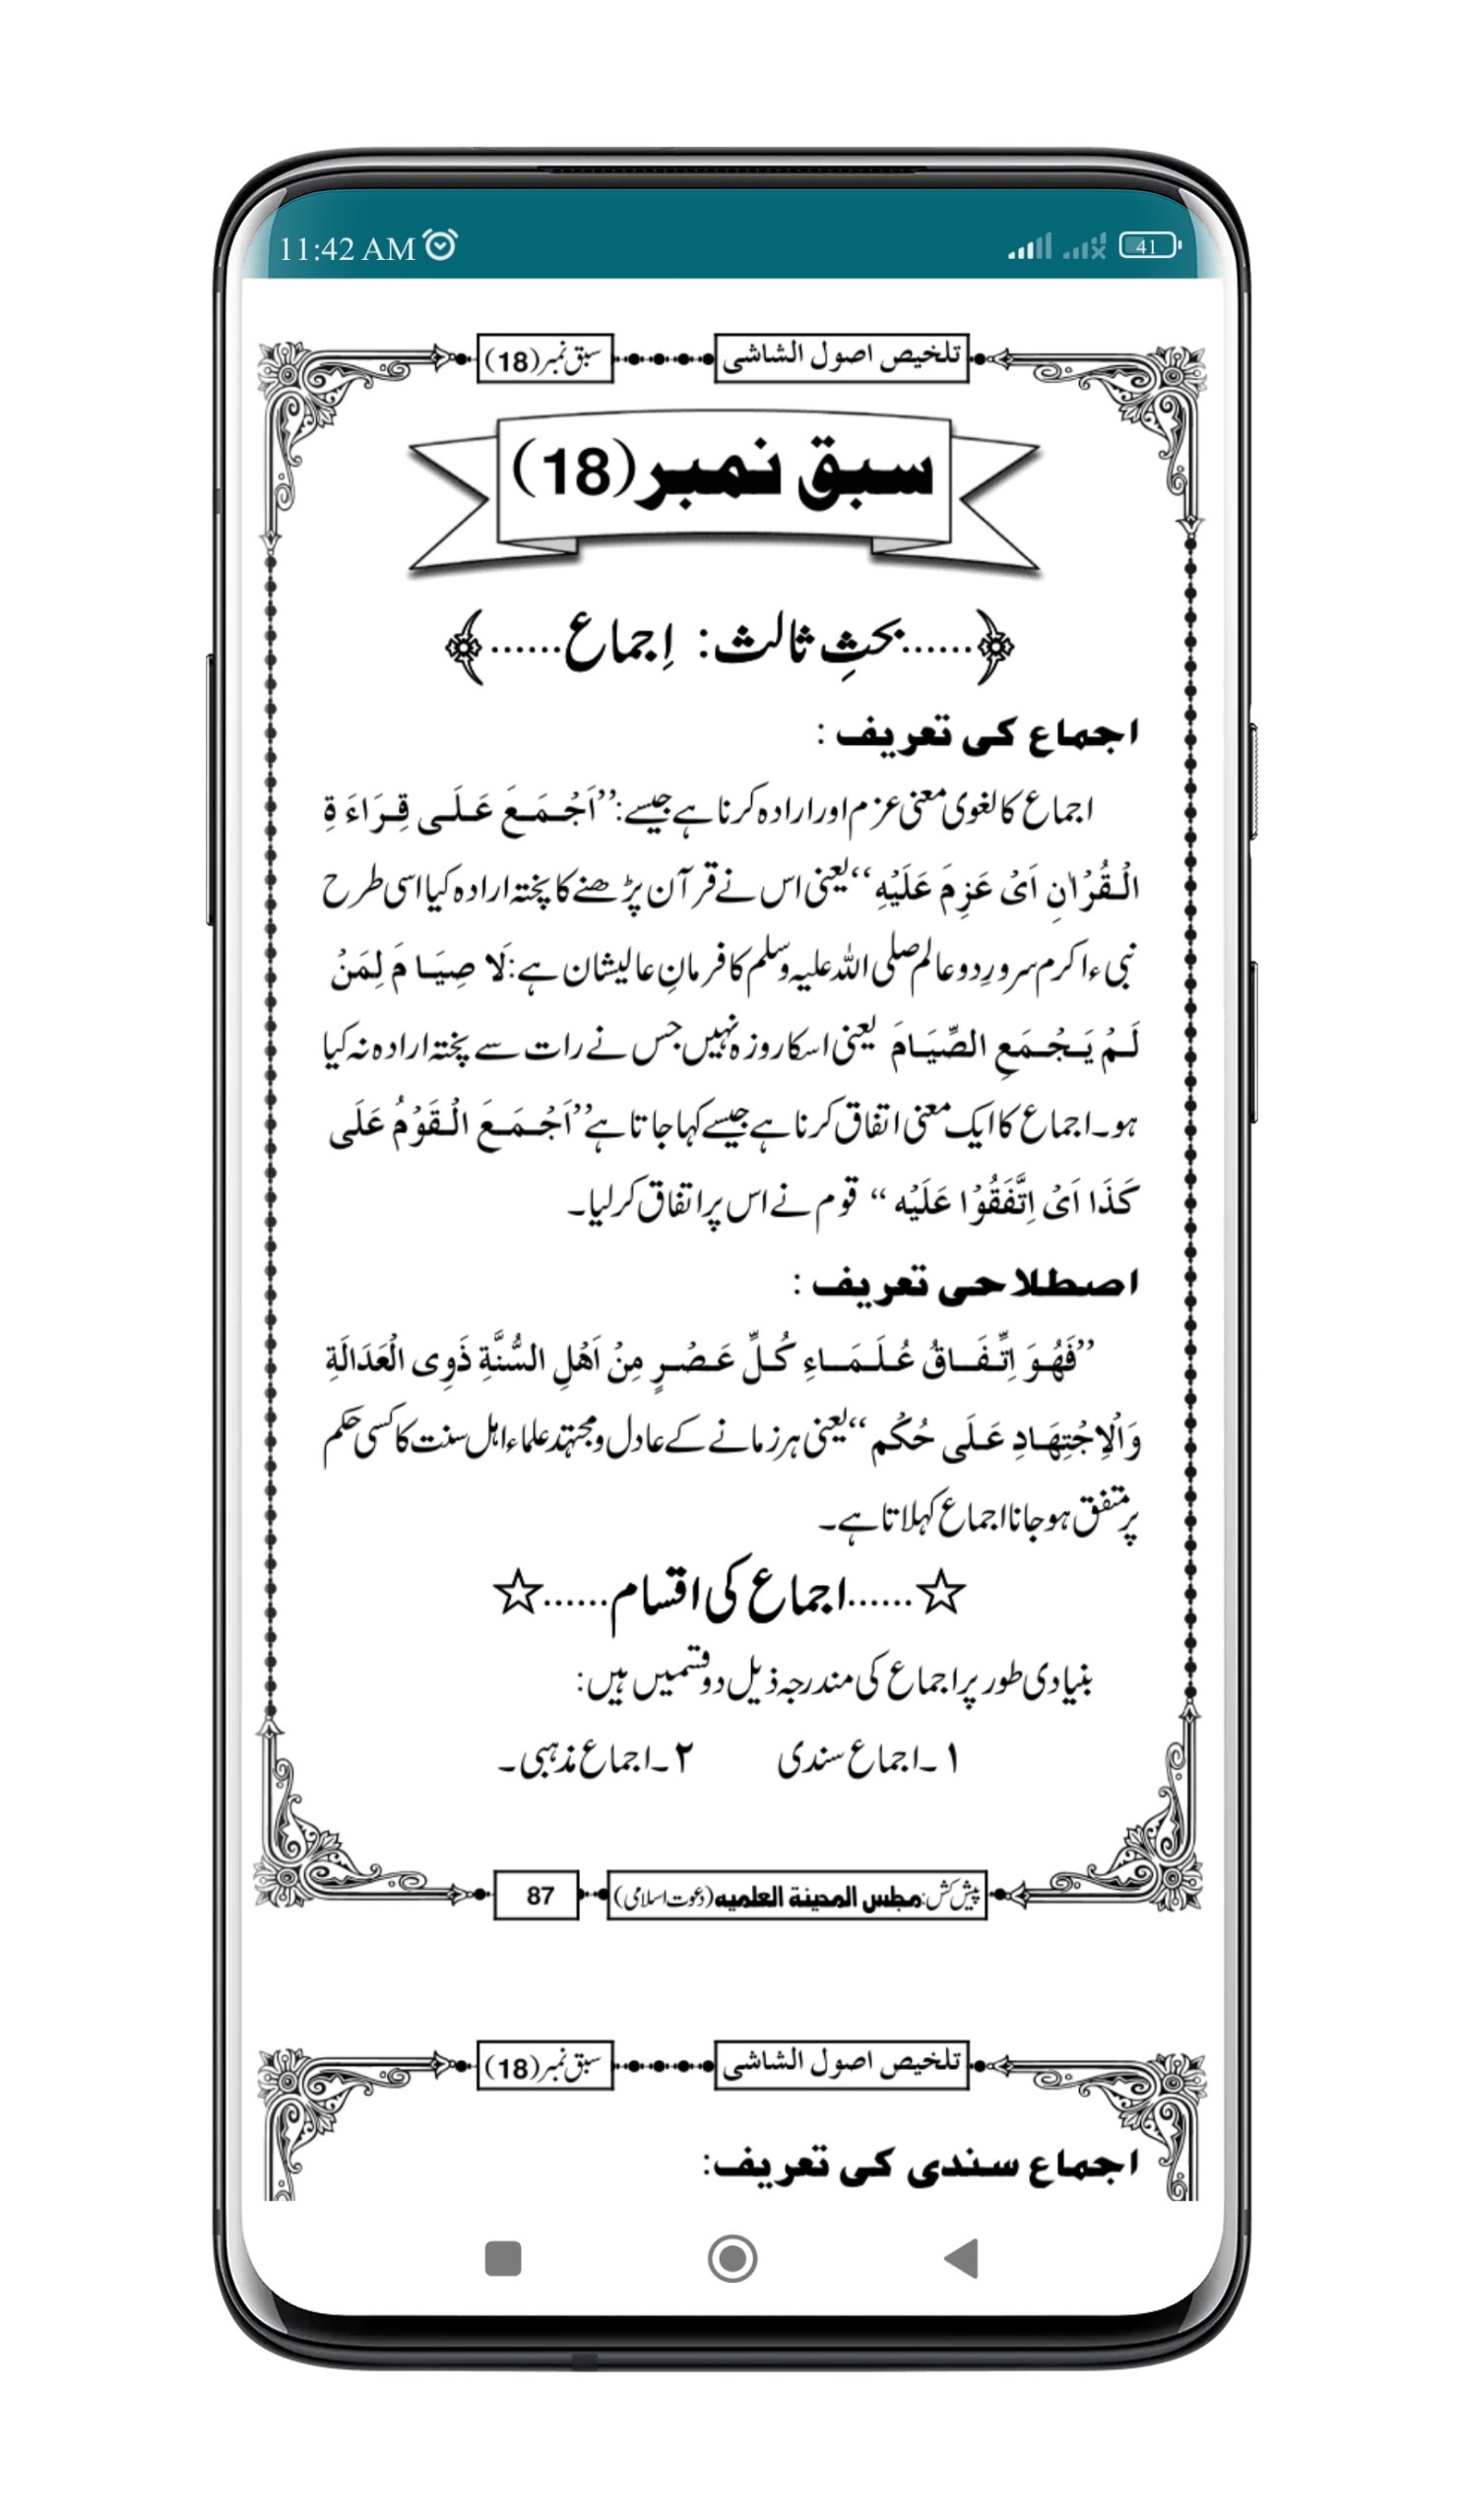 11:42 AM 41
تلخیص اصول الشاشی سبق نمبر(18)
سبق نمبر(18)
......بحثِ ثالث: اِجماع......
اجماع کی تعریف :
اجماع کا لغوی معنی عزم اور ارادہ کرنا ہے جیسے:’’اَجْمَعَ عَلَی قِرَاءَ ةِ
الْقُرْاٰنِ اَیْ عَزِمَ عَلَیْهِ‘‘یعنی اس نے قرآن پڑھنے کا پختہ ارادہ کیا اسی طرح
نبیء اکرم سرورِ دو عالم صلی اللہ علیہ وسلم کا فرمانِ عالیشان ہے:لَا صِیَا مَ لِمَنْ
لَمْ یَجْمَعِ الصِّیَامَ یعنی اسکا روزہ نہیں جس نے رات سے پختہ ارادہ نہ کیا
ہو۔اجماع کا ایک معنی اتفاق کرنا ہے جیسے کہا جاتا ہے’’اَجْمَعَ الْقَوْمُ عَلَی
کَذَا اَیْ اِتَّفَقُوْا عَلَیْه ‘‘ قوم نے اس پر اتفاق کر لیا۔
اصطلاحی تعریف :
’’فَهُوَ اِتِّفَاقُ عُلَمَاءِ کُلِّ عَصْرٍ مِنْ اَهْلِ السُّنَّةِ ذَوِی الْعَدَالَةِ
وَالْاِجْتِهَادِ عَلَی حُکْم‘‘یعنی ہر زمانے کے عادل و مجتہد علماء اہل سنت کا کسی حکم
پر متفق ہو جانا اجماع کہلاتا ہے۔
☆......اجماع کی اقسام......☆
بنیادی طور پر اجماع کی مندرجہ ذیل دو قسمیں ہیں:
۱۔اجماع سندی ۲۔اجماع مذہبی۔
پیش کش:مجلس المدینة العلمیه(دعوت اسلامی) 87
تلخیص اصول الشاشی سبق نمبر(18)
اجماع سندی کی تعریف: